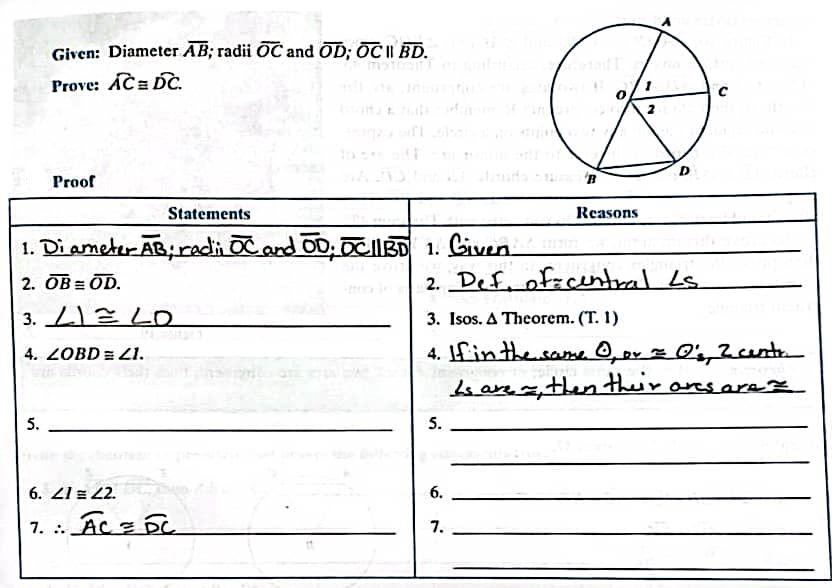 Given: Diameter AB; radii OC and OD; OC ∥ BD.
Prove: AC ≅ DC.
A
O
1
C
2
B
D
Proof
Statements
Reasons
1. Diameter AB; radii OC and OD; OC∥BD
1. Given
2. OB ≅ OD.
2. Def. of ≅ central ∠s
3. ∠1 ≅ ∠D
3. Isos. Δ Theorem. (T. 1)
4. ∠OBD ≅ ∠1.
4. If in the same ⊙, or ≅ ⊙'s, 2 centr.
∠s are ≅, then their arcs are ≅
5.
5.
6. ∠1 ≅ ∠2
6.
7. ∴ AC ≅ DC
7.